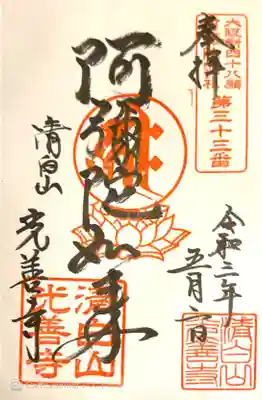 奉拝
大阪新四十八願
第三十三番
阿彌陀如来
清白山
光善寺
令和三年
五月一日
清白山
光善寺
清白山
光善寺